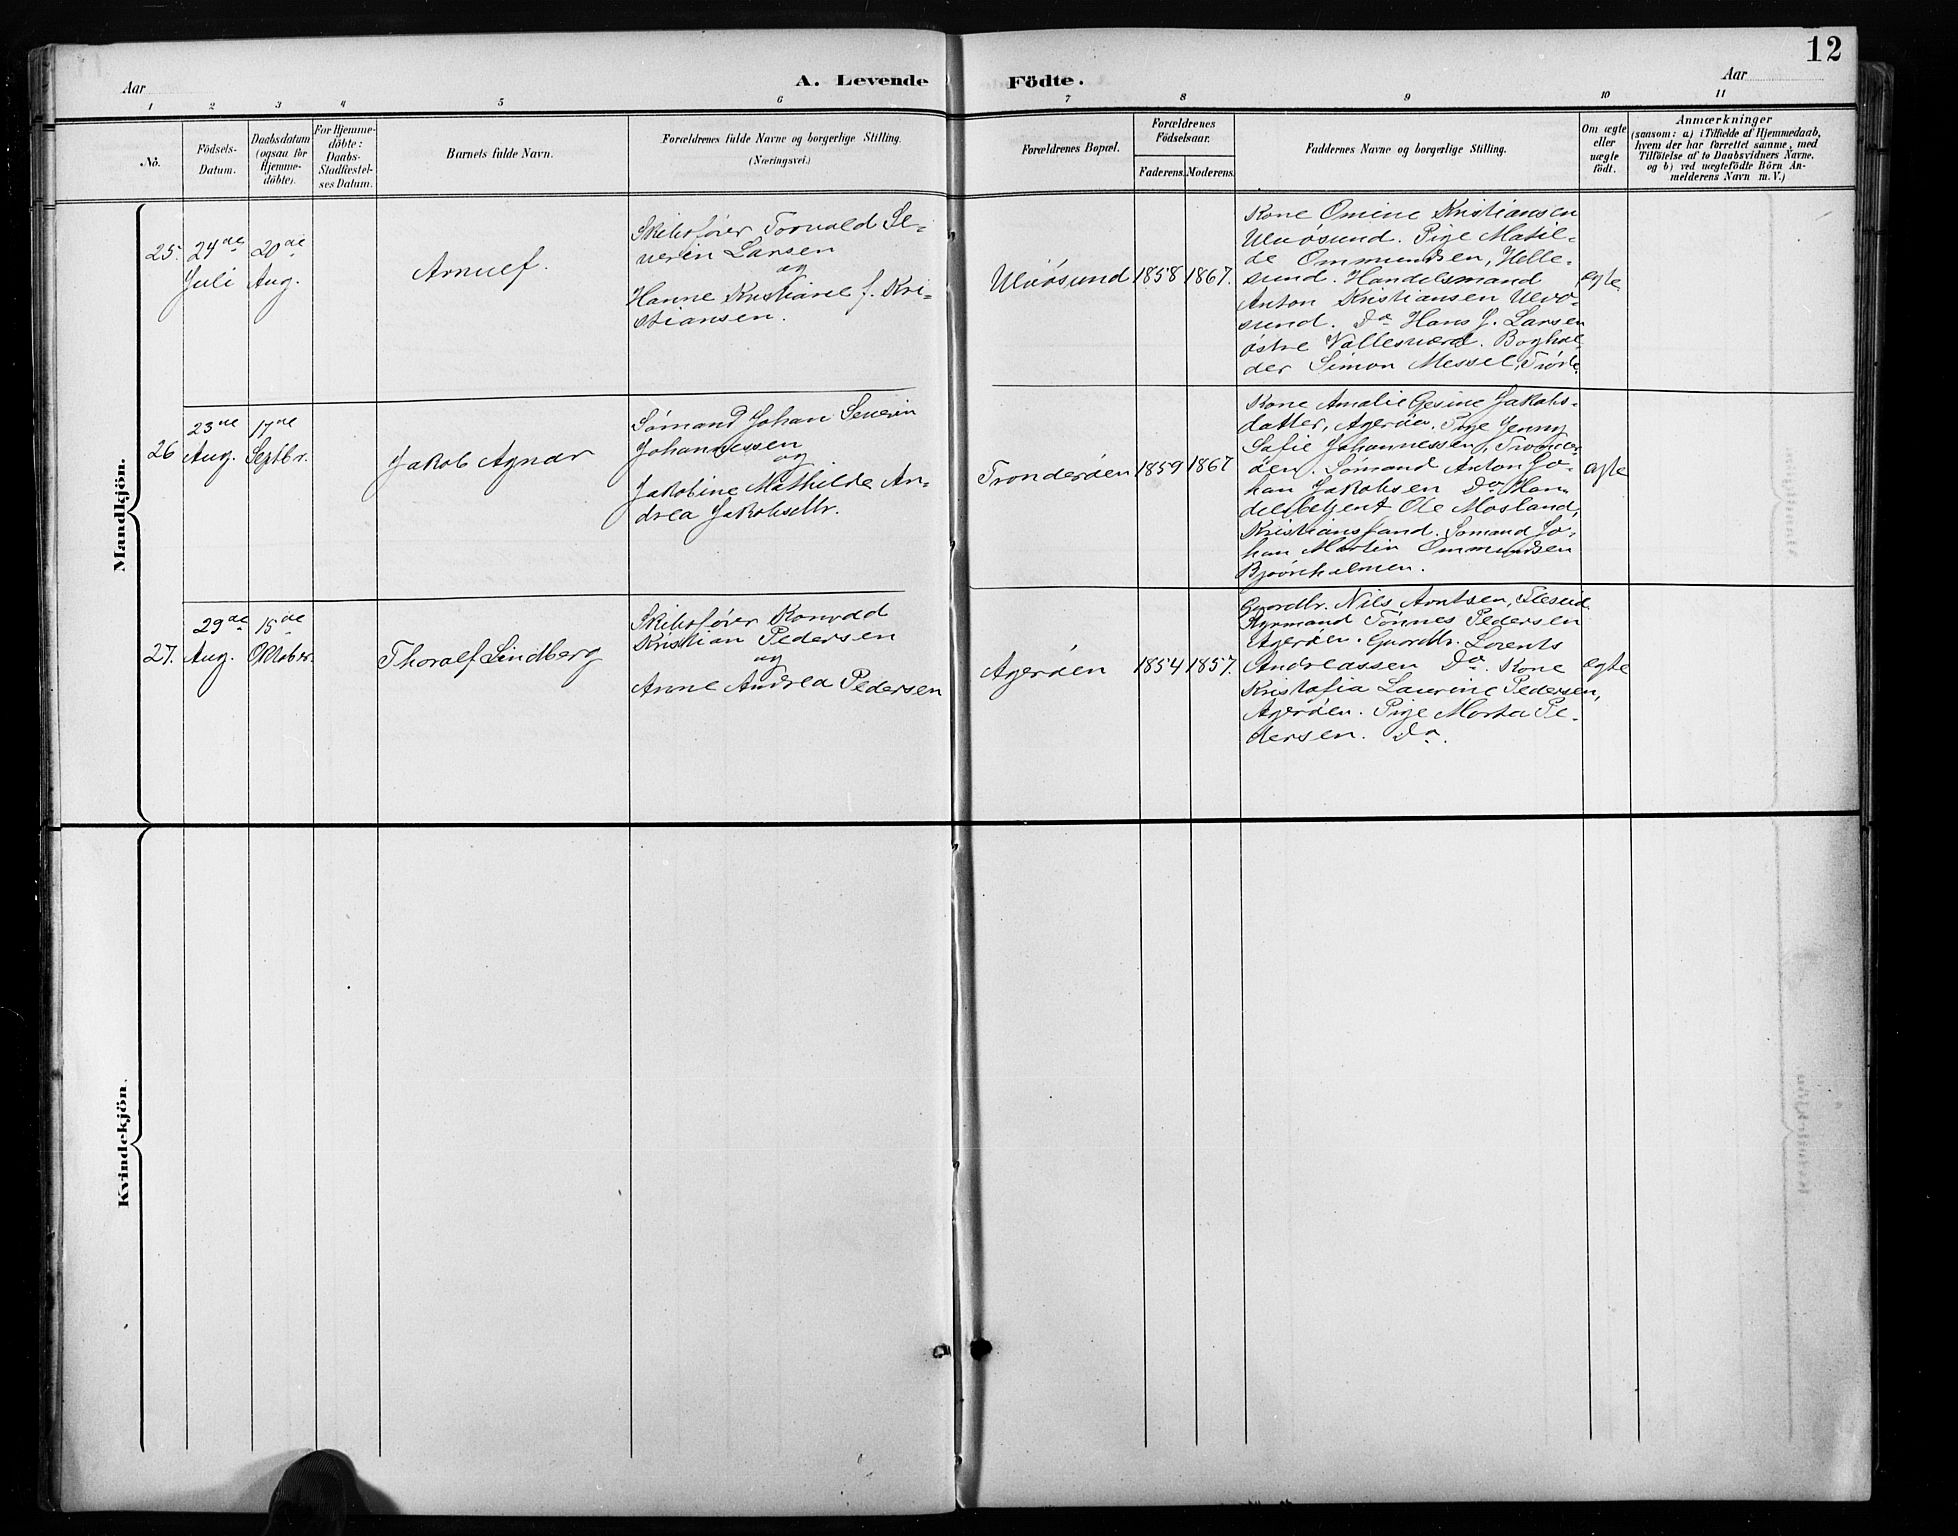 12
Aar
A. Levende Födte.
Aar
1 2 3 4 5 6 7 8 9 10 11
No.
Födsels-
Datum.
Daabsdatum
(ogsaa for
Hjemme-
döbte).
For Hjemme-
döbte:
Daabs-
Stadfæstel-
ses Datum.
Barnets fulde Navn.
Forældrenes fulde Navne og borgerlige Stilling.
(Næringsvei.)
Forældrenes Bopæl.
Forældrenes
Födselsaar.
Faderens. Moderens.
Faddernes Navne og borgerlige Stilling.
Om ægte
eller
uægte
födt.
Anmærkninger
(saasom: a) i Tilfælde af Hjemmedaab,
hvem der har forrettet samme, med
Tilföielse af to Daabsvidners Navne.
og b) ved uægtefödte Börn An-
melderens Navn m. V.)
Mandkjön.
25.
24de
Juli
20de
Aug.
Arnulf.
Skibsfører Torvald Se-
verin Larsen
og
Hanne Kristiane f. Kri-
stiansen.
Ulvøsund
1858 1867.
Kone Omine Kristiansen
Ulvøsund. Pige Matil-
de Ommundsen, Helle-
sund. Handelsmand
Anton Kristiansen Ulvø-
sund. Do Hans J. Larsen
østre Vallesværd. Boghol-
der Simon Messel,
egte
26
23de
Aug.
17de
Septbr.
Jakob Agnar
Sømand Johan Severin
Johannessen
og
Jakobine Mathilde An-
drea Jakobsdtr.
Tronderøen
1859 1867
Kone Amalie Gesine Jakobs-
datter, Agerøen. Pige Jenny
Sofie Johannessen, Tronder-
øen. Sømand Anton Jo-
han Jakobsen Do. Han-
delsbetjent Ole Mosland,
Kristianssand. Sømand Jo-
han Martin Ommundsen
Bjørnholmen.
egte
27.
29de
Aug.
15de
Oktober.
Thoralf Lindberg
Skibsfører Konrad
Kristian Pedersen
og
Anne Andrea Pedersen
Agerøen
1854 1857.
Gaardbr. Nils Arntsen,
Styrmand Tønnes Pedersen
Agerøen. Gaardbr. Lorents
Andreassen Do. Kone
Kristofia Laurine Pedersen,
Agerøen. Pige Marta Pe-
dersen. Do.
egte
Kvindekjön.